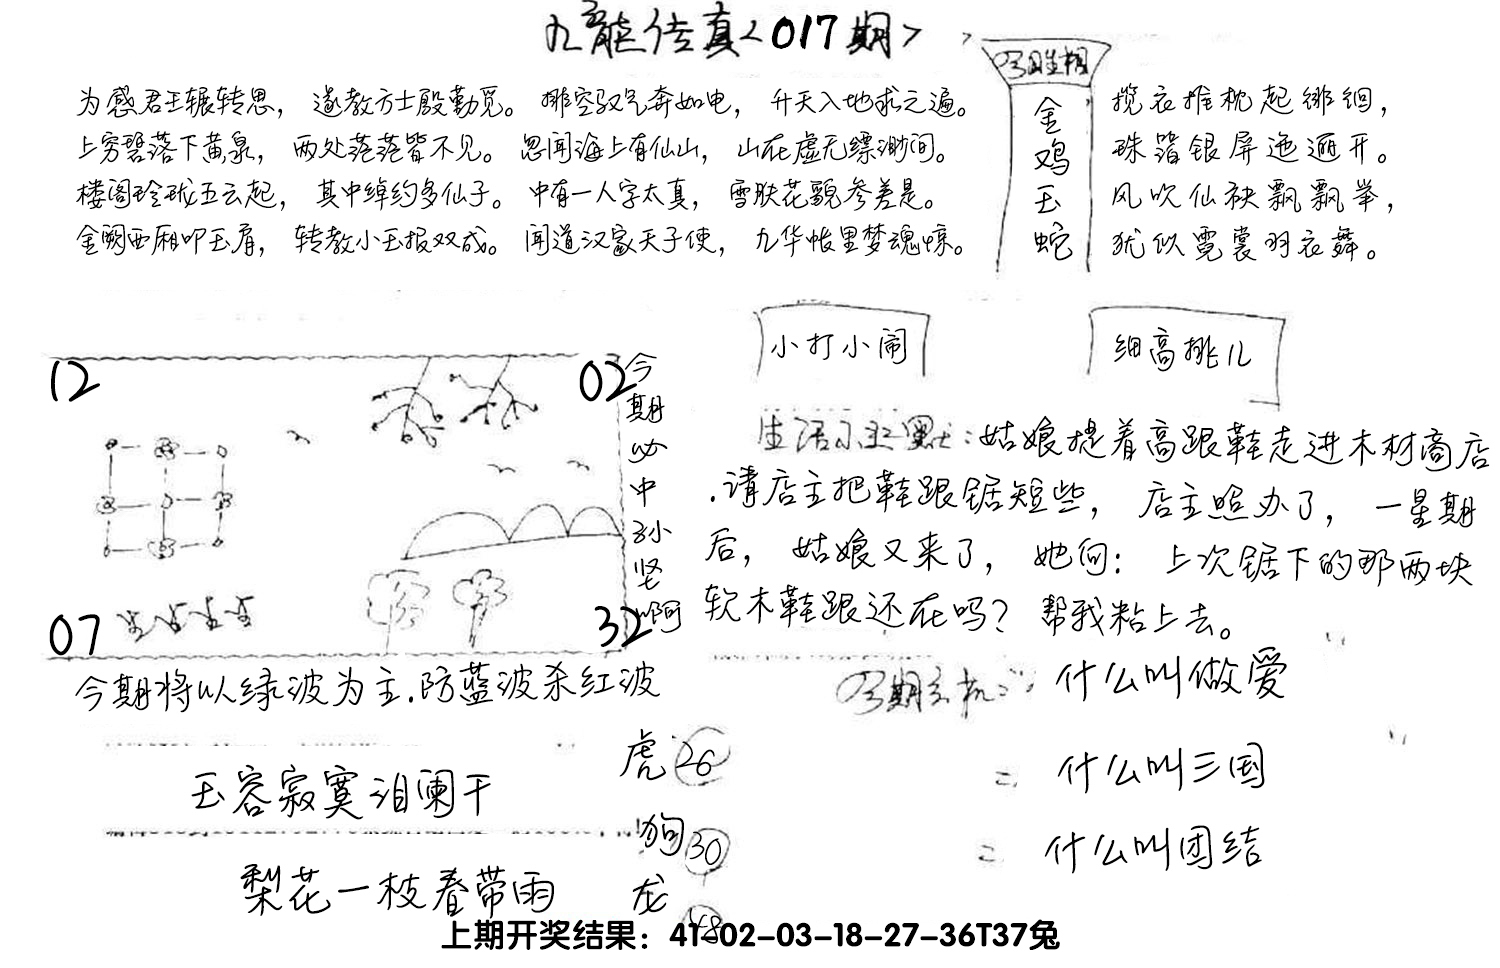 九龍传真<017期>
今期生相
金
鸡
玉
蛇
为感君王辗转思，遂教方士殷勤觅。排空驭气奔如电，升天入地求之遍。
上穷碧落下黄泉，两处茫茫皆不见。忽闻海上有仙山，山在虚无缥渺间。
楼阁玲珑五云起，其中绰约多仙子。中有一人字太真，雪肤花貌参差是。
金阙西厢叩玉扃，转教小玉报双成。闻道汉家天子使，九华帐里梦魂惊。
揽衣推枕起徘徊，
珠箔银屏迤逦开。
风吹仙袂飘飘举，
犹似霓裳羽衣舞。
小打小闹
细高挑儿
12
02
07
32
今
期
必
中
孙
坚
啊
生活小幽默：姑娘提着高跟鞋走进木材商店
.请店主把鞋跟锯短些，店主照办了，一星期
后，姑娘又来了，她问：上次锯下的那两块
软木鞋跟还在吗？帮我粘上去。
今期将以绿波为主.防蓝波杀红波
今期玄机：什么叫做爱
= 什么叫三国
= 什么叫团结
玉容寂寞泪阑干
梨花一枝春带雨
虎 26
狗 30
龙 48
上期开奖结果：41-02-03-18-27-36T37兔